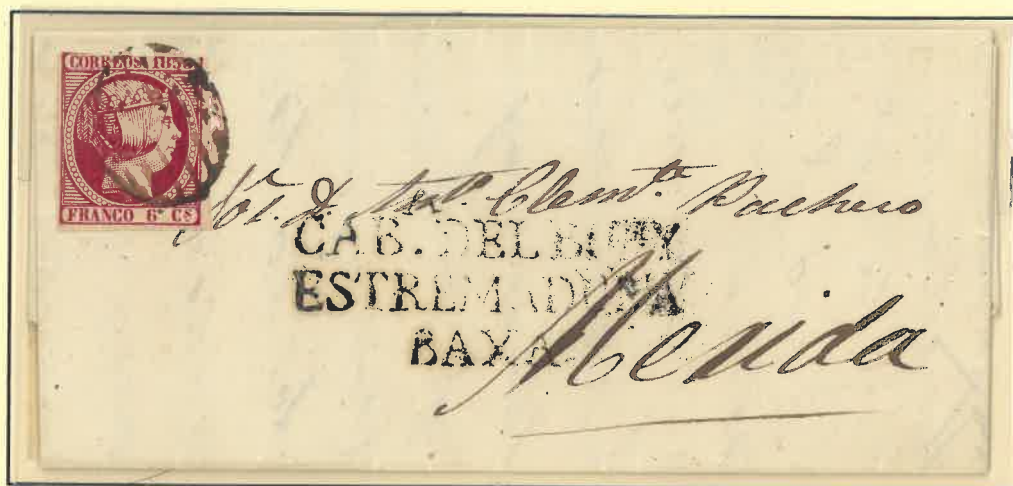 CORREOS 185
FRANCO 6 Cs
Sr. D. Antº Clemte Pacheco
CAB. DEL BUEY
ESTREMADURA
BAXA
Merida